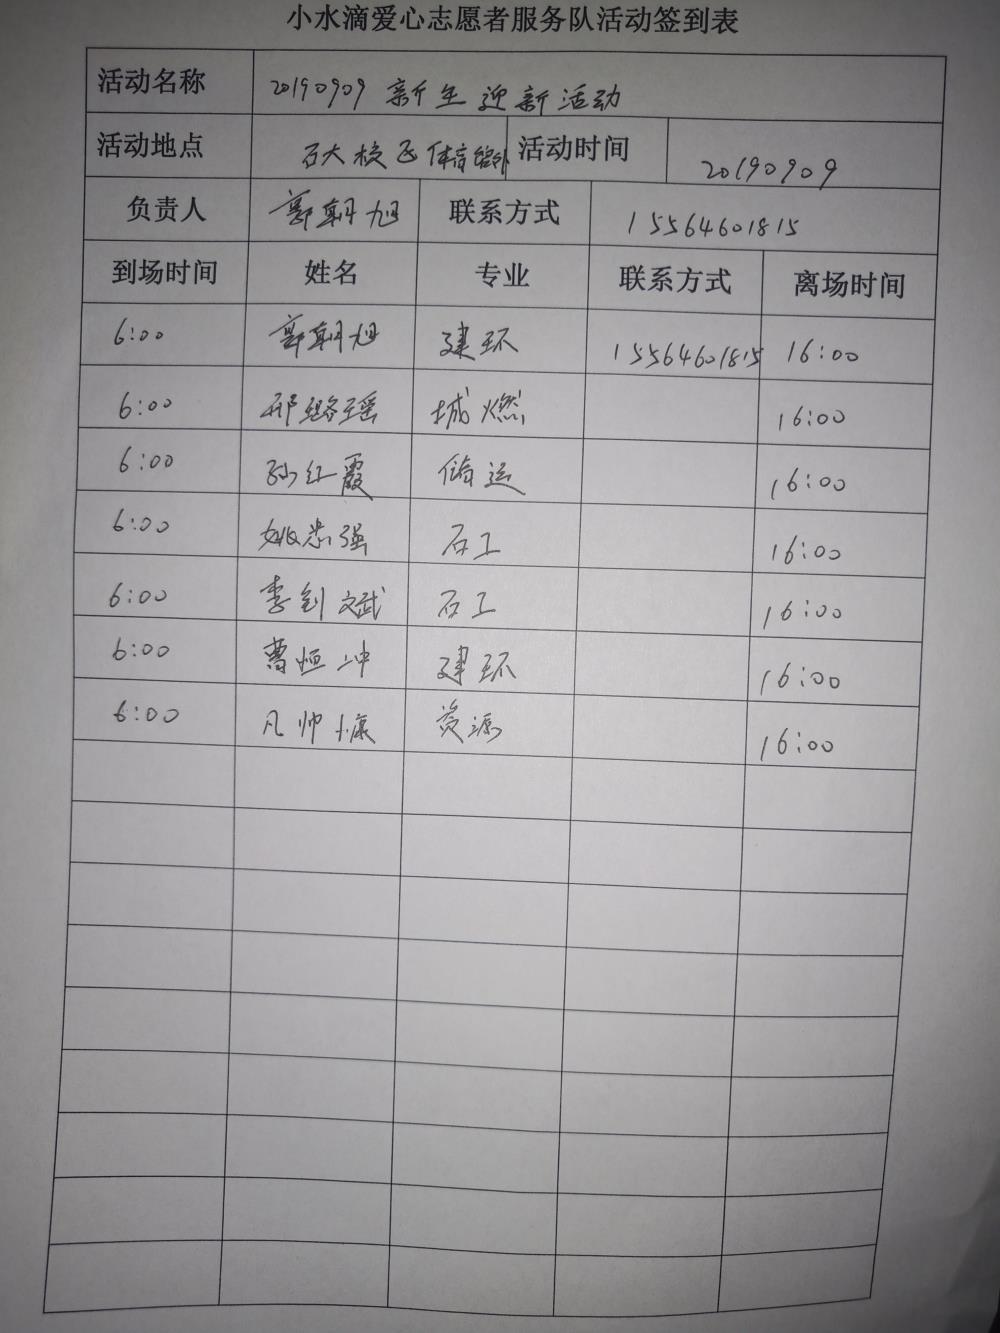 小水滴爱心志愿者服务队活动签到表
活动名称 20190909 新生迎新活动
活动地点 石大校区体育馆外 活动时间 20190909
负责人 郭朝旭 联系方式 15564601815
到场时间 姓名 专业 联系方式 离场时间
6:00 郭朝旭 建环 15564601815 16:00
6:00 邢璐瑶 城燃 16:00
6:00 孙红霞 储运 16:00
6:00 姚志强 石工 16:00
6:00 李钊斌 石工 16:00
6:00 曹恒冲 建环 16:00
6:00 凡帅康 资源 16:00